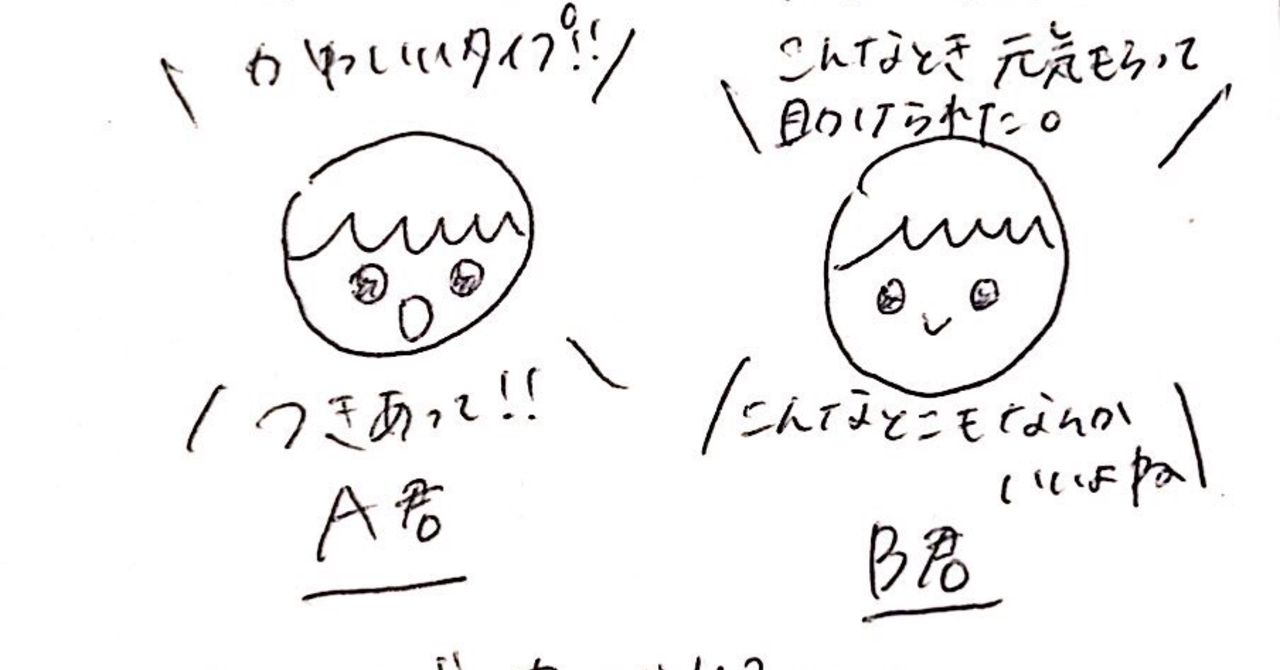 かわいいタイプ!!
つきあって!!
A君
こんなとき 元気もらって
助けられた。
こんなとこもなんか
いいよね
B君